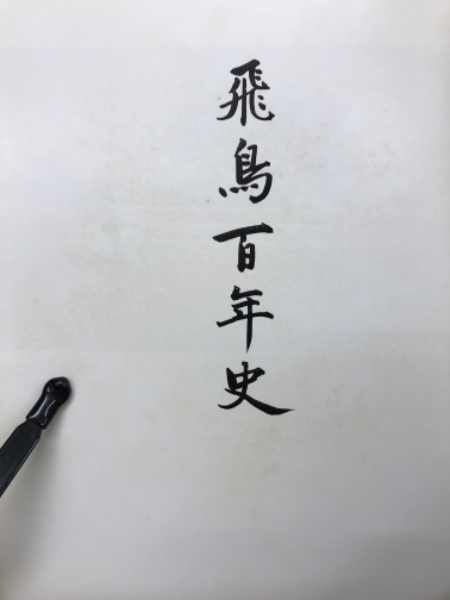 飛鳥百年史